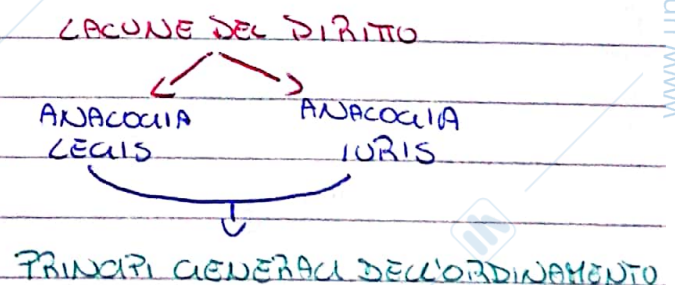 LACUNE DEL DIRITTO
ANALOGIA ANALOGIA
LEGIS IURIS
PRINCIPI GENERALI DELL'ORDINAMENTO